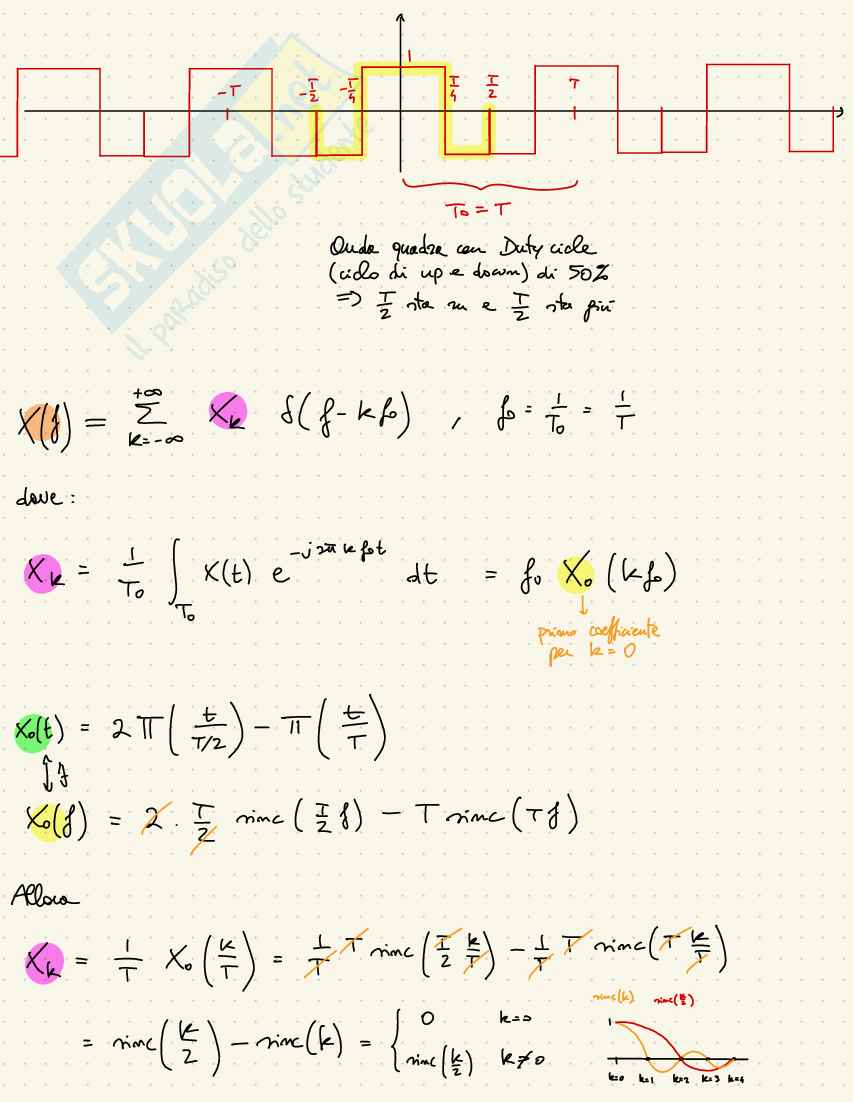 1
-T -T/2 -T/4 T/4 T/2 T
T₀ = T
Onda quadra con Duty cicle
(ciclo di up e down) di 50%
⇒ T/2 sta su e T/2 sta giù
SKUOLA.net
il paradiso dello studente
X(f) = ∑_{k=-∞}^{+∞} X_k δ(f - kf₀) , f₀ = 1/T₀ = 1/T
dove :
X_k = 1/T₀ ∫_{T₀} x(t) e^{-j2πkf₀t} dt = f₀ X₀(kf₀)
primo coefficiente
per k=0
x₀(t) = 2Π(t/(T/2)) - Π(t/T)
↕ F
X₀(f) = 2 · T/2 sinc(T/2 f) - T sinc(Tf)
Allora
X_k = 1/T X₀(k/T) = 1/T T sinc(T/2 k/T) - 1/T T sinc(T k/T)
sinc(k) sinc(k/2)
= sinc(k/2) - sinc(k) = { 0 k=0
sinc(k/2) k≠0
1
k=0 k=1 k=2 k=3 k=4